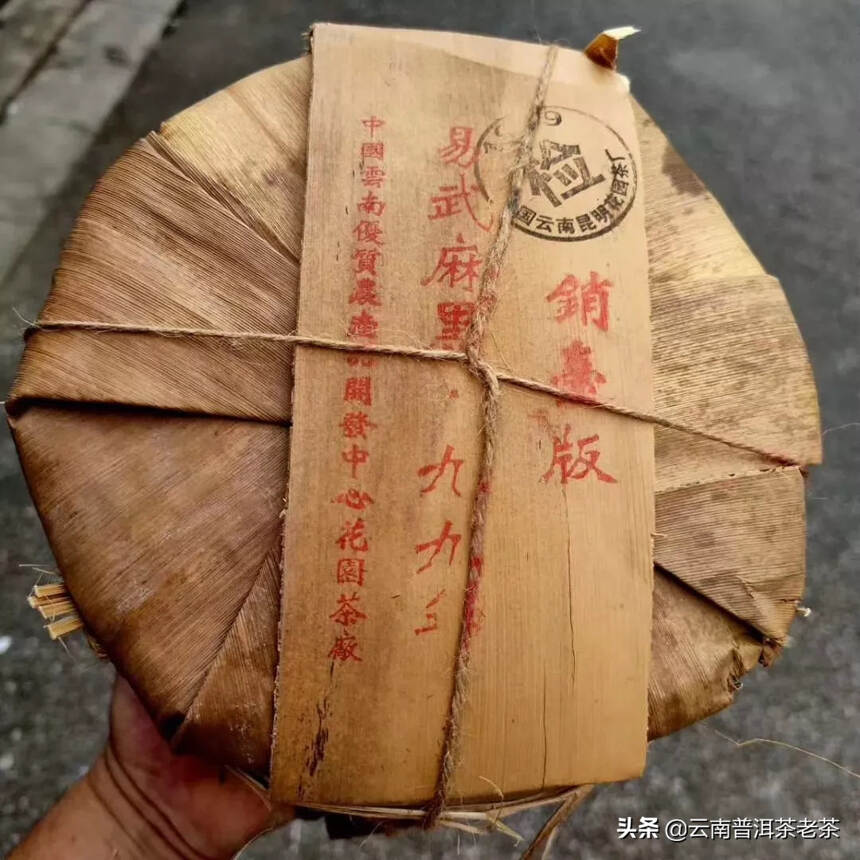 检
国云南昆明花园茶厂
銷臺版
易武麻黑
九九
中國雲南優質農產品開發中心花園茶廠
头条 @云南普洱茶老茶